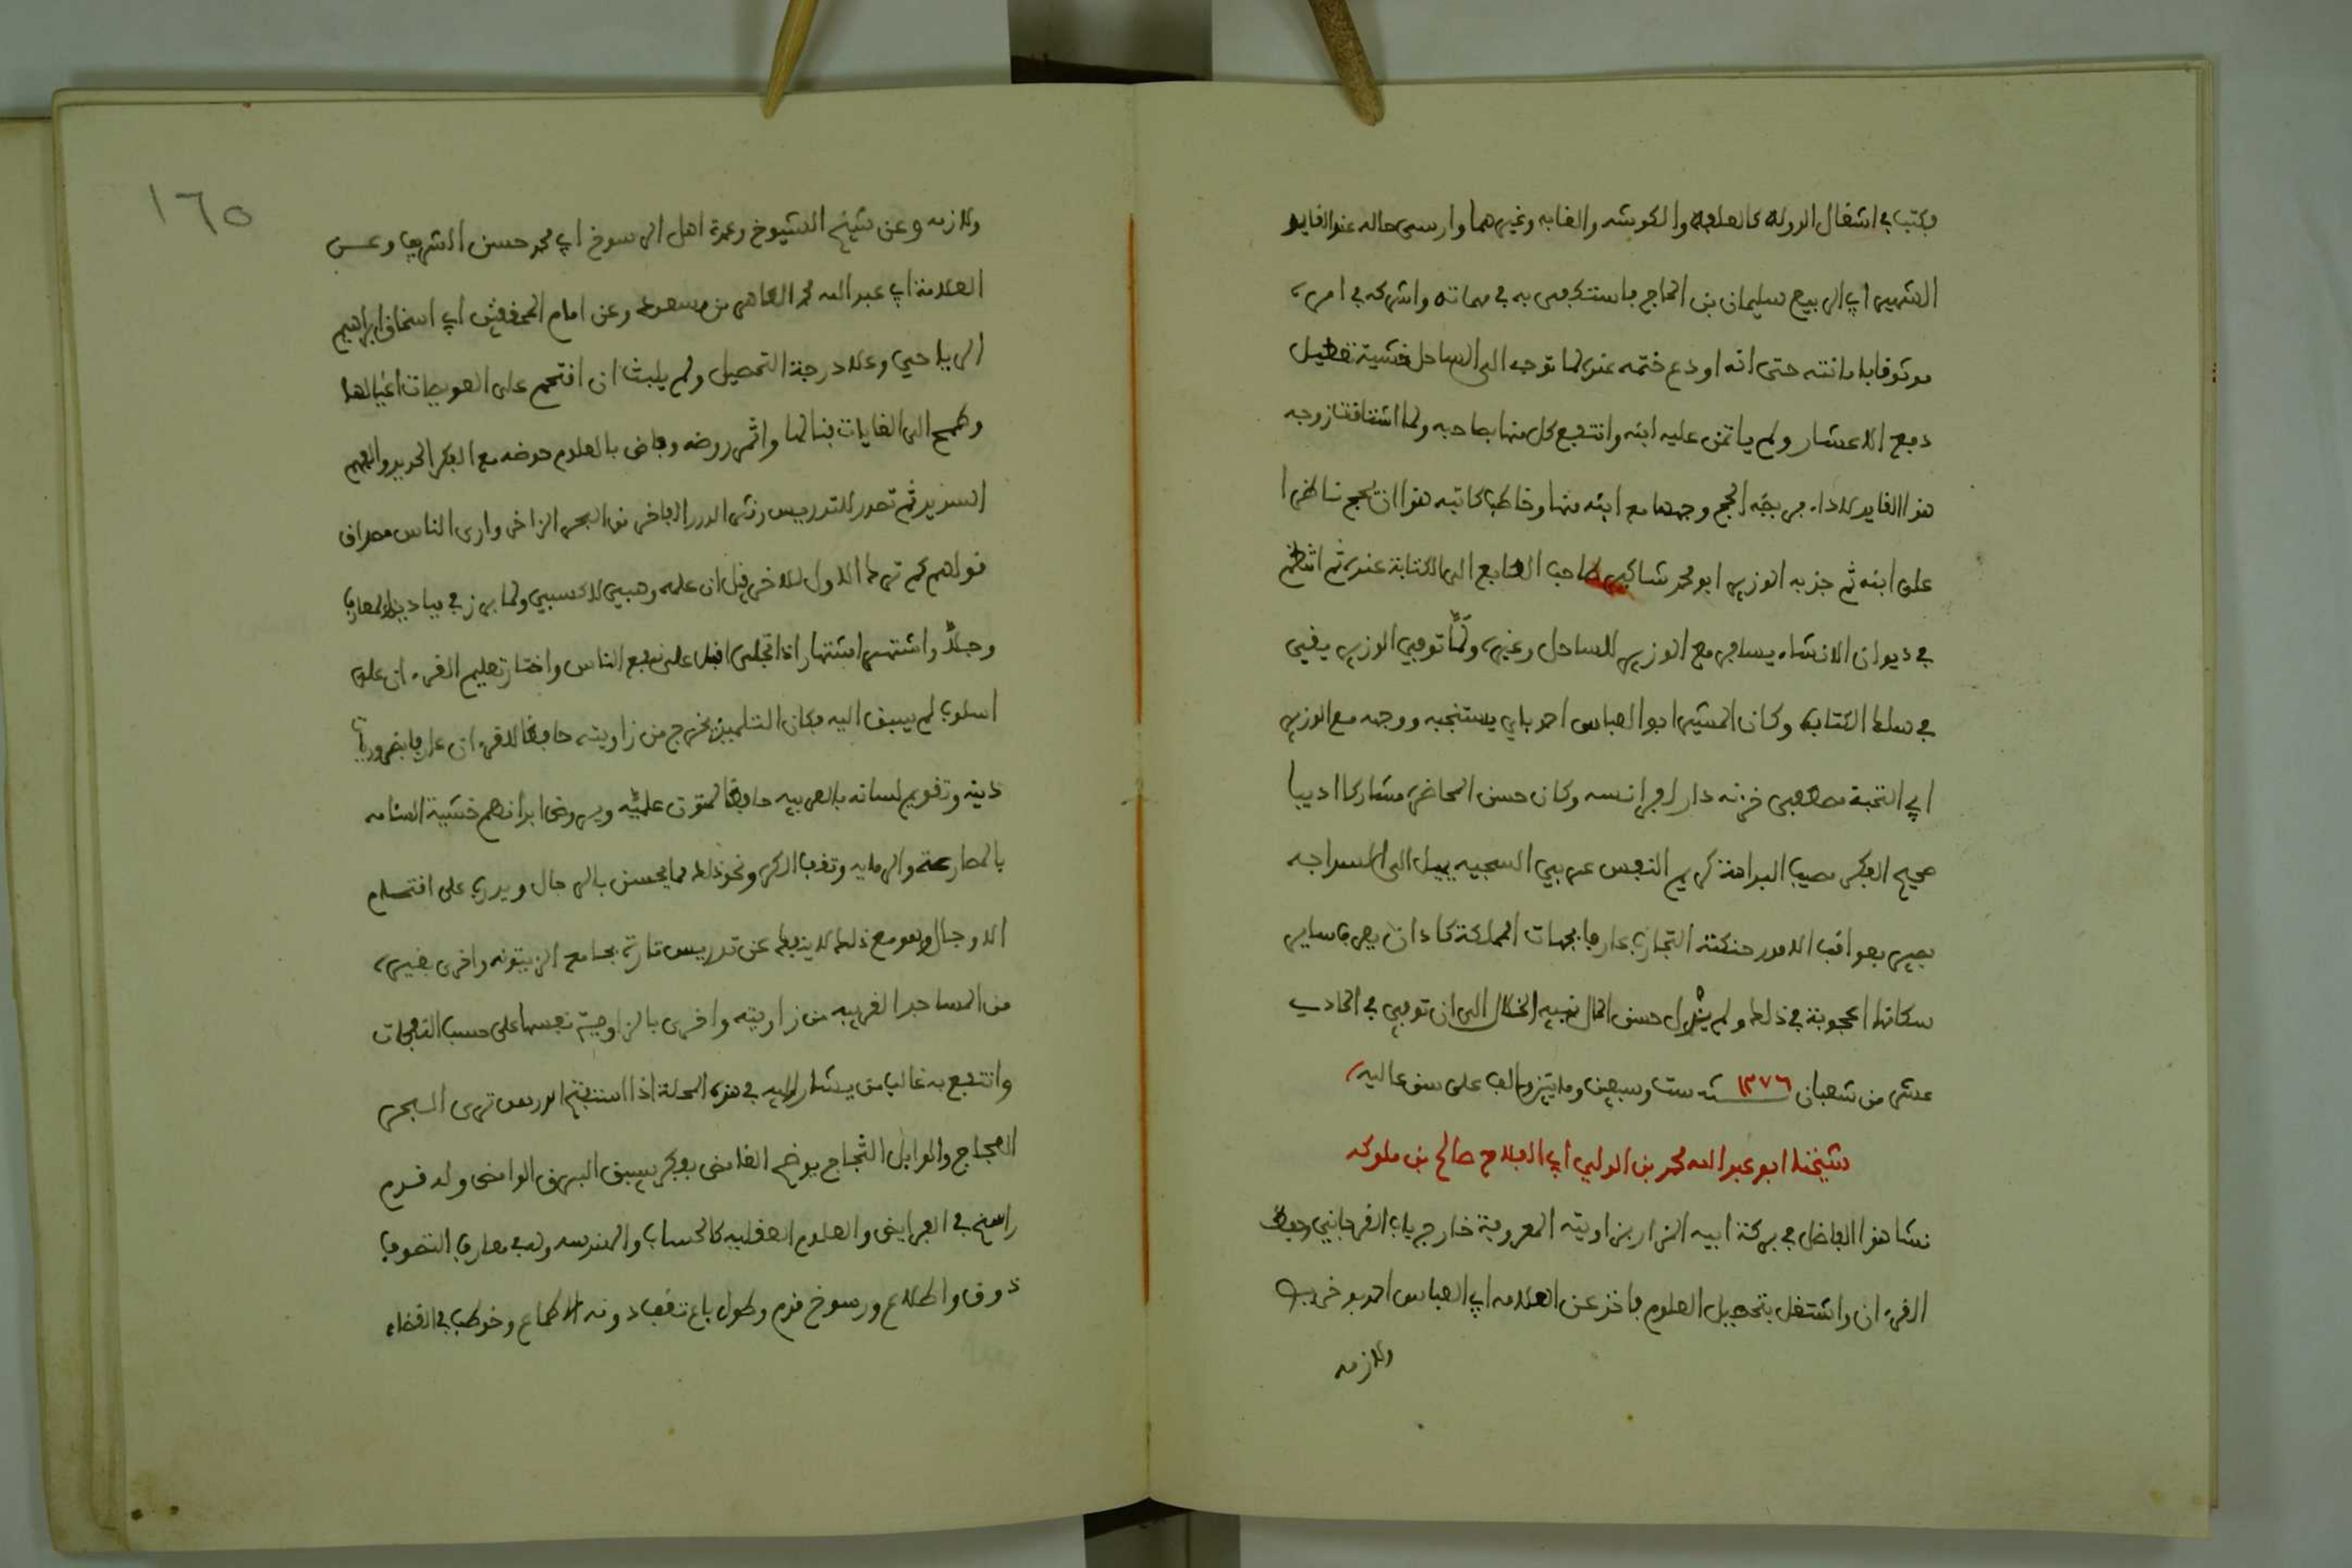 فكتب في اشغال الدولة كالعلفة والكوشه والغابه وغيرهما وارسى حاله عند القايد
الشهير ابي الربيع سليمان بن الحاج فاستكفى به في مهماته واشركه في امره
موثوقا بامانته حتى انه اودع ختمه عنده لما توجه الى الساحل خشية تعطيل
دفع الاعشار ولم ياتمن عليه ابنه وانتفع كل منهما بصاحبه ولما اشتاقت زوجه
هذا القايد لاداء فريضة الحج وجهها مع ابنه منها وخاطب كاتبه هذا ان يحج ناظرا
على ابنه ثم جذبه الوزير ابو محمد شاكير صاحب الطابع الى الكتابة عنده ثم انتظم
في ديوان الانشاء يسافر مع الوزير للساحل وغيره ولمّا توفي الوزير بقي
في سلك الكتابة وكان المشير ابو العباس احمد باي يستنجبه ووجهه مع الوزير
ابي النخبة مصطفى خزنه دار لفرانسه وكان حسن المحاضرة مشاركا اديبا
صحيح الفكر مصيب البداهة كريم النفس عربي السجيه يميل الى السراجه
بصير بعواقب الامور حنكته التجارب عارفا بجهات المملكة كاد ان يعرف ساير
سكانها اعجوبة في ذلك ولم يزل حسن الحال نبيه الخلال الى ان توفي في الحادي
عشر من شعبان ١٢٧٦ سنة ست وسبعين ومايتين والف على سن عاليه
شيخنا ابو عبد الله محمد بن الولي ابي الفلاح صالح بن ملوكه
نشا هذا الفاضل في بركة ابيه الزار بزاويته المعروفة خارج باب القرجاني وحفظ
القرءان واشتغل بتحصيل العلوم فاخذ عن العلامه ابي العباس احمد بو خريص
ولازمه
١٦٥
ولازمه وعن شيخ الشيوخ وعمدة اهل الرسوخ ابي محمد حسن الشريف وعن
العلامة ابي عبد الله محمد الطاهر بن مسعود وعن امام المحققين ابي اسحاق ابراهيم
الرياحي وعلا درجة التحصيل ولم يلبث ان اقتحم على العويصات اغيالها
وطمح الى الغايات فنالها واثمر روضه وفاض بالعلوم حوضه مع الفكر الحديد والفهم
السديد ثم تصدر للتدريس ونثر الدرر الفاخر من البحر الزاخر وارى الناس مصداق
قولهم كم ترك الاول للاخر قيل ان علمه وهبي لا كسبي ولما برز في ميادين المعارف
وجلّا واشتهر اشتهار اذا تجلى اقبل على نفع الناس واختار تعليم القرءان على
اسلوب لم يسبق اليه فكان التلميذ يخرج من زاويته حافظا للقرءان عارفا بضروريات
دينه وتقويم لسانه بالعربيه حافظا لمتون علميّه ويروض ابدانهم خشية السئامه
بالمصارعة والرمايه وتقف الكره ونحو ذلك مما يحسن بالرجال ويدرب على اقتحام
الاوجال وهو مع ذلك لا ينفك عن تدريس تارة بجامع الزيتونه واخرى بغيره
من المساجد القريبه من زاويته واخرى بالزاوية نفسها على حسب التقلبات
وانتفع به غالب من يشار اليه في هذه المحلة اذا استفتح الدرس ترى البحر
العجاج والوابل الثجاج يوضح الغامض بفكر يسبق البرق الوامض وله قدم
راسخ في الفرايض والعلوم العقليه كالحساب والهندسه وله في معارف التصوف
ذوق واطلاع ورسوخ قدم وطول باع تتقصاد دونه الاطماع وخوطب في القضاء